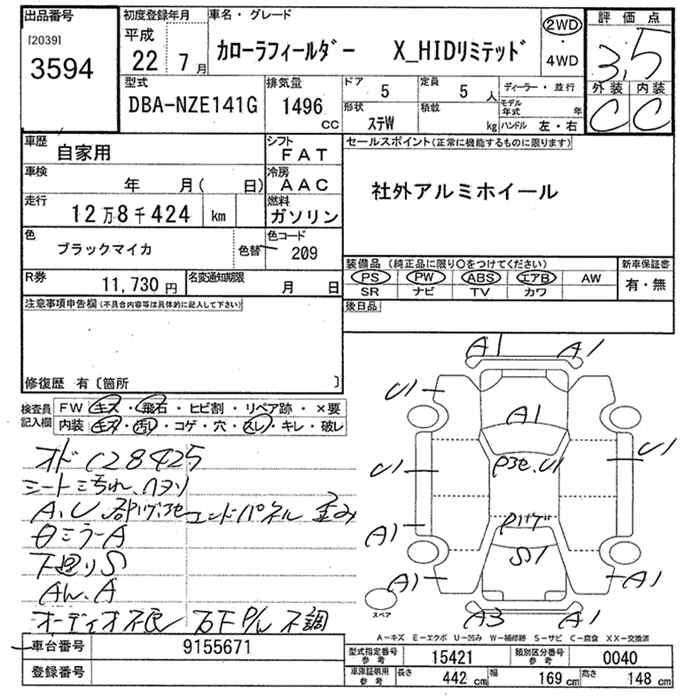 出品番号 初度登録年月 車名・グレード 評価点
[2039] 平成 カローラフィールダー X_HIDリミテッド 2WD 3.5
3594 22 7月 ・4WD
型式 排気量 ドア 5 定員 5人 ディーラー・並行 外装 内装
DBA-NZE141G 1496cc 形状 ステW 積載 kg モデル年式 年 C C
ハンドル 左・右
車歴 自家用 シフト FAT セールスポイント(正常に機能するものに限ります)
車検 年 月( 日) 冷房 AAC 社外アルミホイール
走行 12万8千424 km 燃料 ガソリン
色 ブラックマイカ 色替 色コード 209
装備品(純正品に限り○をつけてください) 新車保証書
R券 11,730円 名変通知期限 月 日 PS PW ABS エアB AW 有・無
SR ナビ TV カワ
注意事項申告欄(不具合内容等は具体的に記入して下さい) 後日品
修復歴 有〔箇所 〕
検査員記入欄 FW キズ・飛石・ヒビ割・リペア跡・×要
内装 キズ・汚レ・コゲ・穴・スレ・キレ・破レ
A1 A1
U1 A1
P3セ,U1
U1 U1
Pバゲ
A1 S1
A1 A1
A3 A1
オド128425
シート汚れ、
A,U エンドパネル 歪み
ミラーA
下廻りS
A
オーディオ不良 不調
スペア
A-キズ E-エクボ U-凹み W-補修跡 S-サビ C-腐食 XX-交換済
車台番号 9155671 型式指定番号参考 15421 類別区分番号参考 0040
登録番号 車庫証明用参考 長さ 442cm 幅 169cm 高さ 148cm